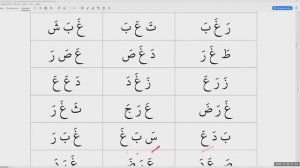 رَ غَ بَ ثَ عَ بَ غَ بَ شَ
طَ غَ رَ دَ غَ صَ عَ صَ رَ
زَ رَ عَ زَ غَ دَ دَ عَ عَ
غَ رَ ضَ عَ رَ جَ ثَ غَ رَ
بَ دَ غَ سَ بَ غَ غَ بَ رَ